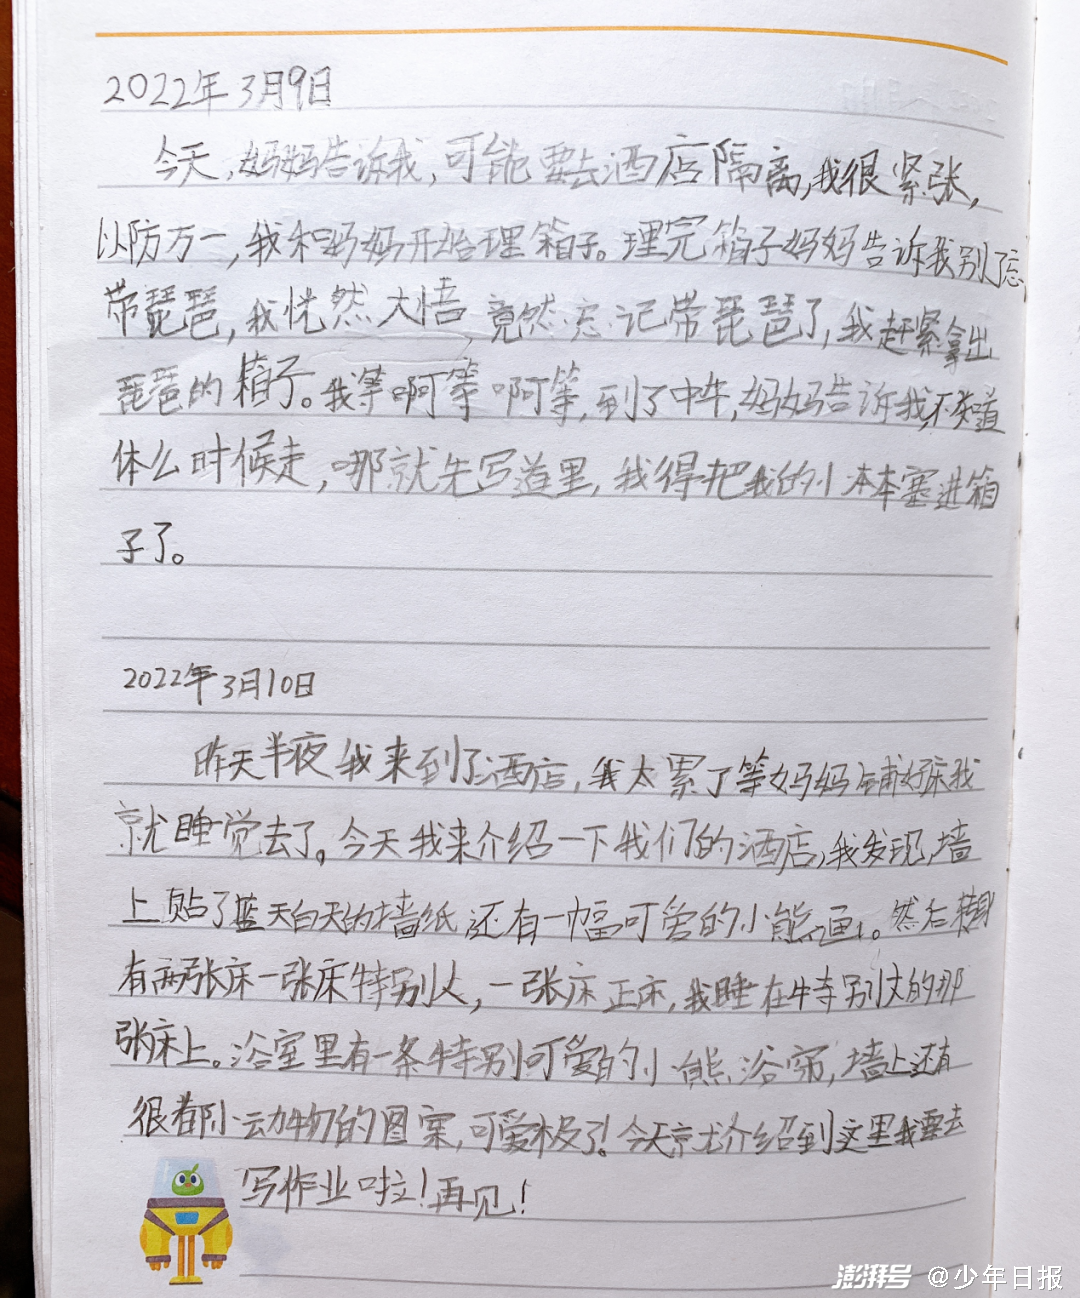 2022年3月9日
今天,妈妈告诉我,可能要去酒店隔离,我很紧张,
以防万一,我和妈妈开始理箱子。理完箱子妈妈告诉我别忘
带琵琶,我恍然大悟,竟然忘记带琵琶了,我赶紧拿出
琵琶的箱子。我等啊等啊等,到了中午,妈妈告诉我不知道
什么时候走,那就先写道里,我得把我的小本本塞进箱
子了。
2022年3月10日
昨天半夜我来到了酒店,我太累了等妈妈铺好床我
就睡觉去了。今天我来介绍一下我们的酒店,我发现,墙
上贴了蓝天白天的墙纸,还有一幅可爱的小熊画。然后
有两张床一张床特别大,一张床正床,我睡在特别大的那
张床上。浴室里有一条特别可爱的小熊浴帘,墙上还有
很有小动物的图案,可爱极了!今天就介绍到这里我要去
写作业啦!再见!
澎湃号 @少年日报